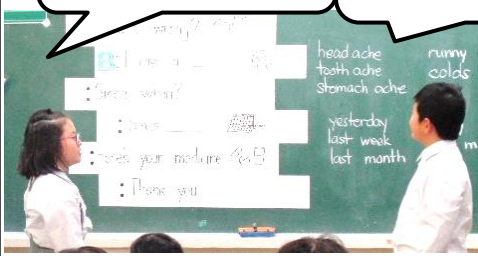 B: I have a
Since when?
Since
Here's your medicine
Thank you
head ache
tooth ache
stomach ache
runny
colds
yesterday
last week
last month